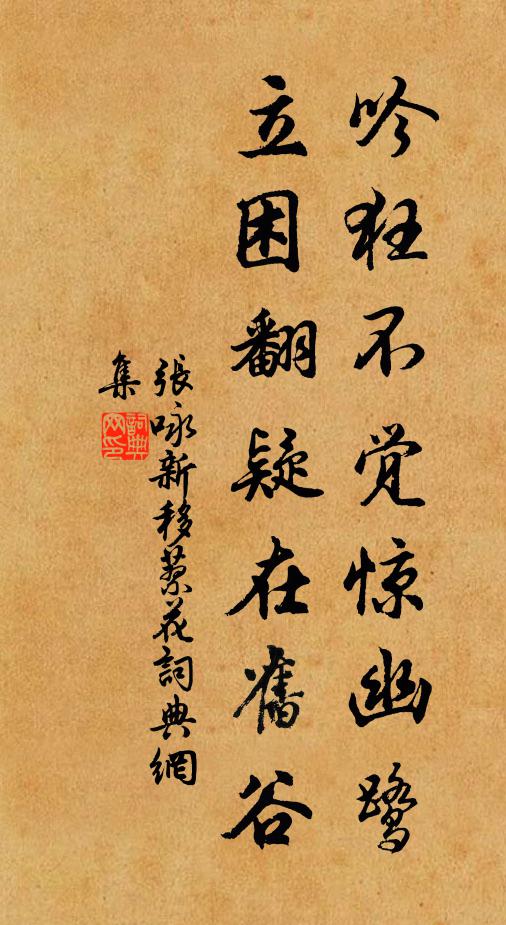 吟狂不觉惊幽鹭
立困翻疑在舊谷
張咏新移花詞典網
集
詞典
网印